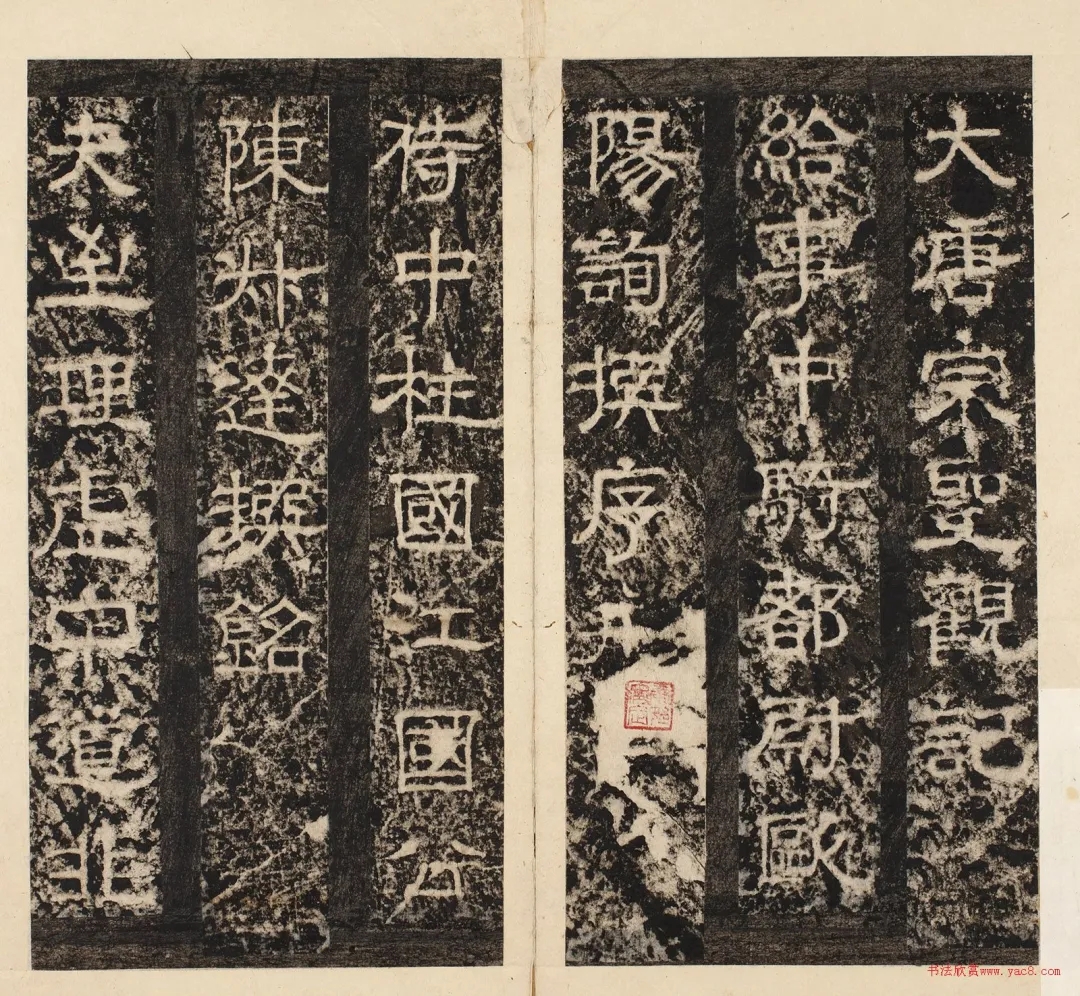 大唐宗聖觀記
給事中騎都尉歐
陽詢撰序并
侍中柱國江國公
陳叔達撰銘
夫至理虛寂道非
书法欣赏www.yac8.com